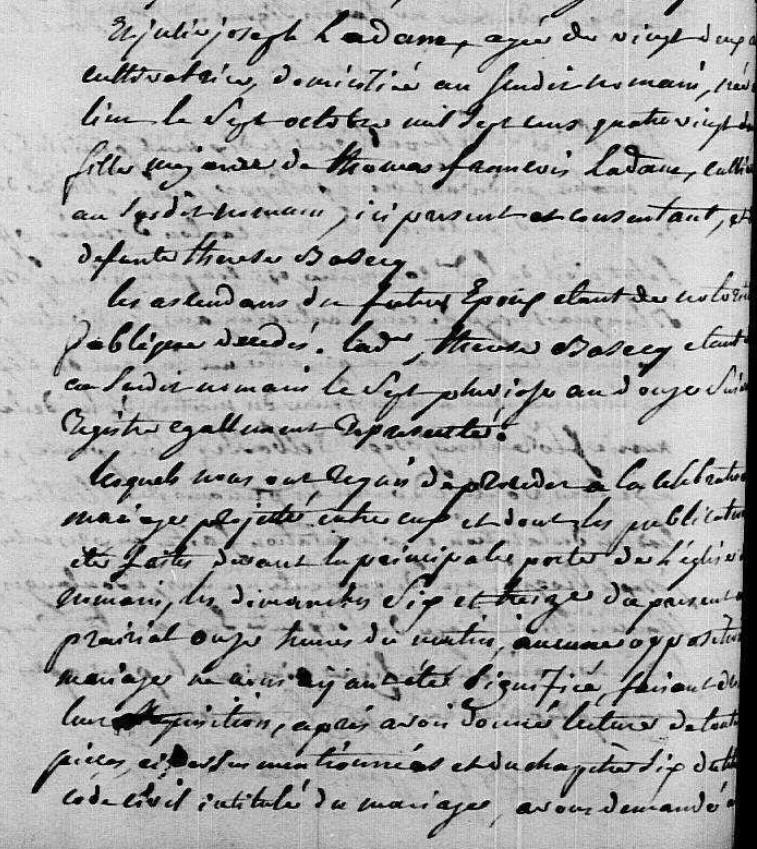 Et julie joseph Ladam, agée de vingt deux a
cultivatrice, domiciliée au susdit nomain, née
lieu le sept octobre mil sept cens quatre vingt d
fille majeure de thomas francois Ladam, cultiv
au susdit nomain, ici present et consentant, et
defunte therese Bosecq
les ascendans du futur Epoux etant de notorieté
publique decedés. ladte therese Bosecq etant
au susdit nomain le sept pluviose an douze suiv
Registre egallement representé.
lesquels nous ont requis de proceder a la celebration
mariage projetté entre eux et dont les publications
été faites devant la principale porte de l'église
nomain, les dimanches six et treize du present
prairial onze heures du matin, aucune opposition
mariage ne nous ayant été signifiée, faisant d
leur requisition, après avoir donné lecture de toute
pieces ci dessus mentionnées et du chapitre six d
code civil intitulé du mariage, avons demandé